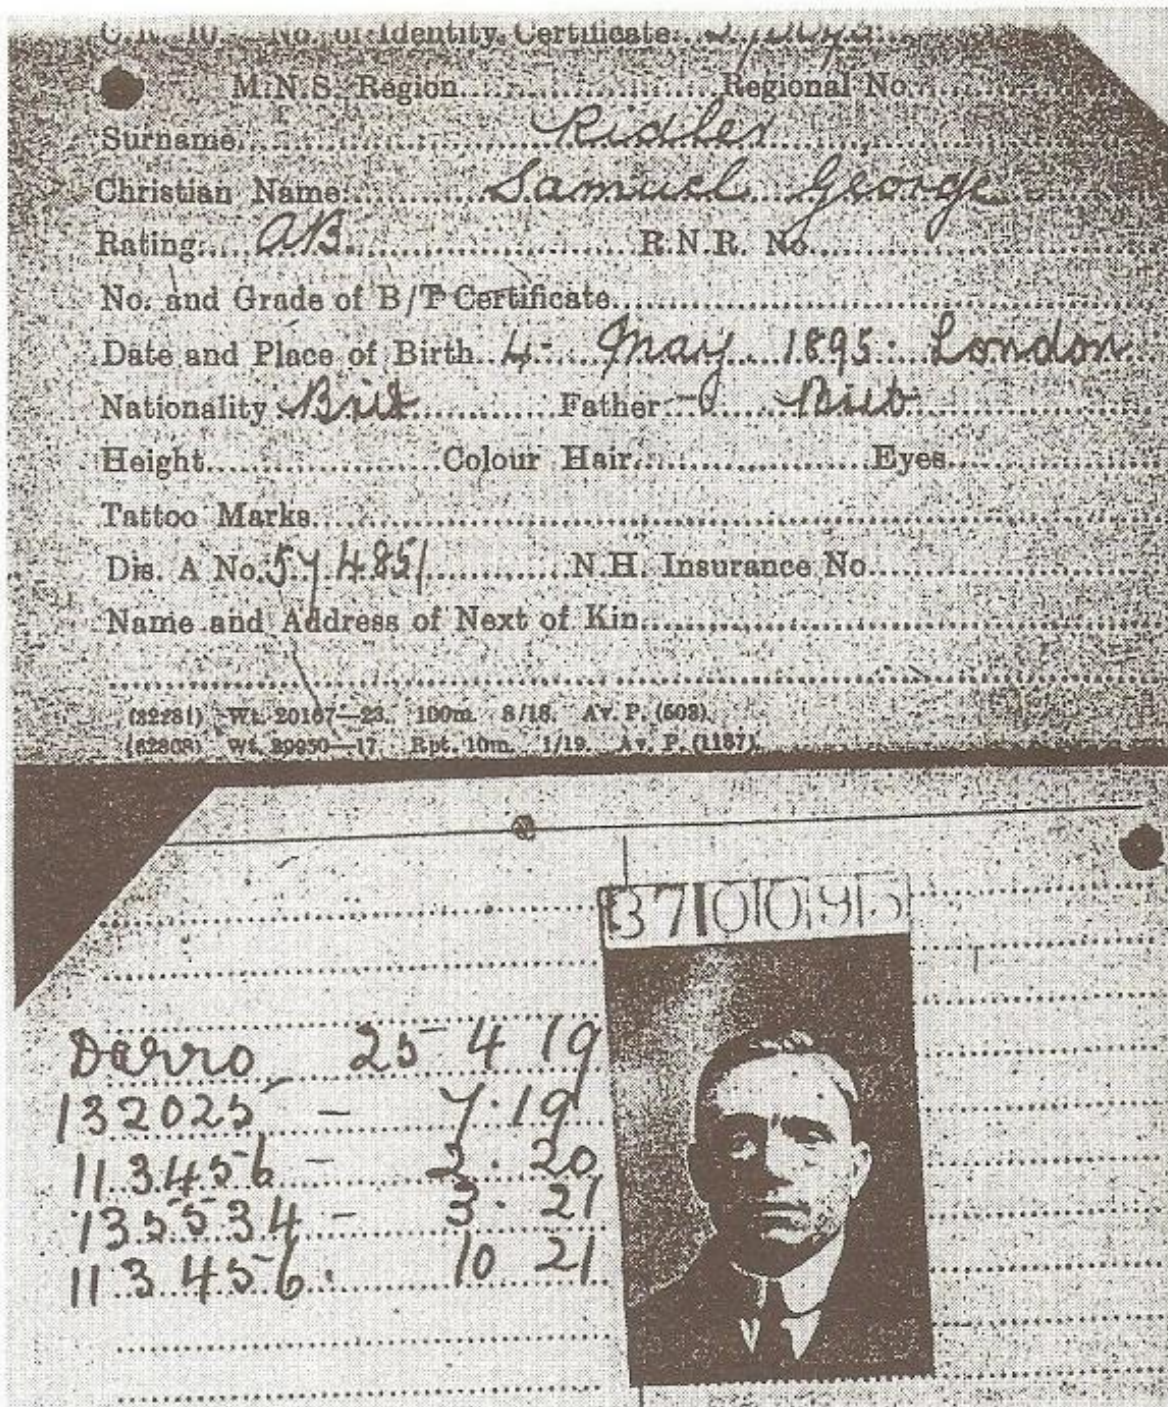 C.R. 10.—No. of Identity Certificate
M.N.S. Region Regional No.
Surname Ridler
Christian Name Samuel George
Rating AB. R.N.R. No.
No. and Grade of B/T Certificate
Date and Place of Birth 4 - May 1895. London
Nationality Brit Father Brit
Height Colour Hair Eyes
Tattoo Marks
Dis. A No. 574851 N.H. Insurance No.
Name and Address of Next of Kin
(32281) Wt. 20167—23. 100m. 8/18. Av. P. (503).
(62808) Wt. 29950—17. Rpt. 10m. 1/19. Av. P. (1187).
3710095
Darro 25 4 19
132025 - 7.19
113456 - 2. 20
135534 - 3. 21
113456. 10 21